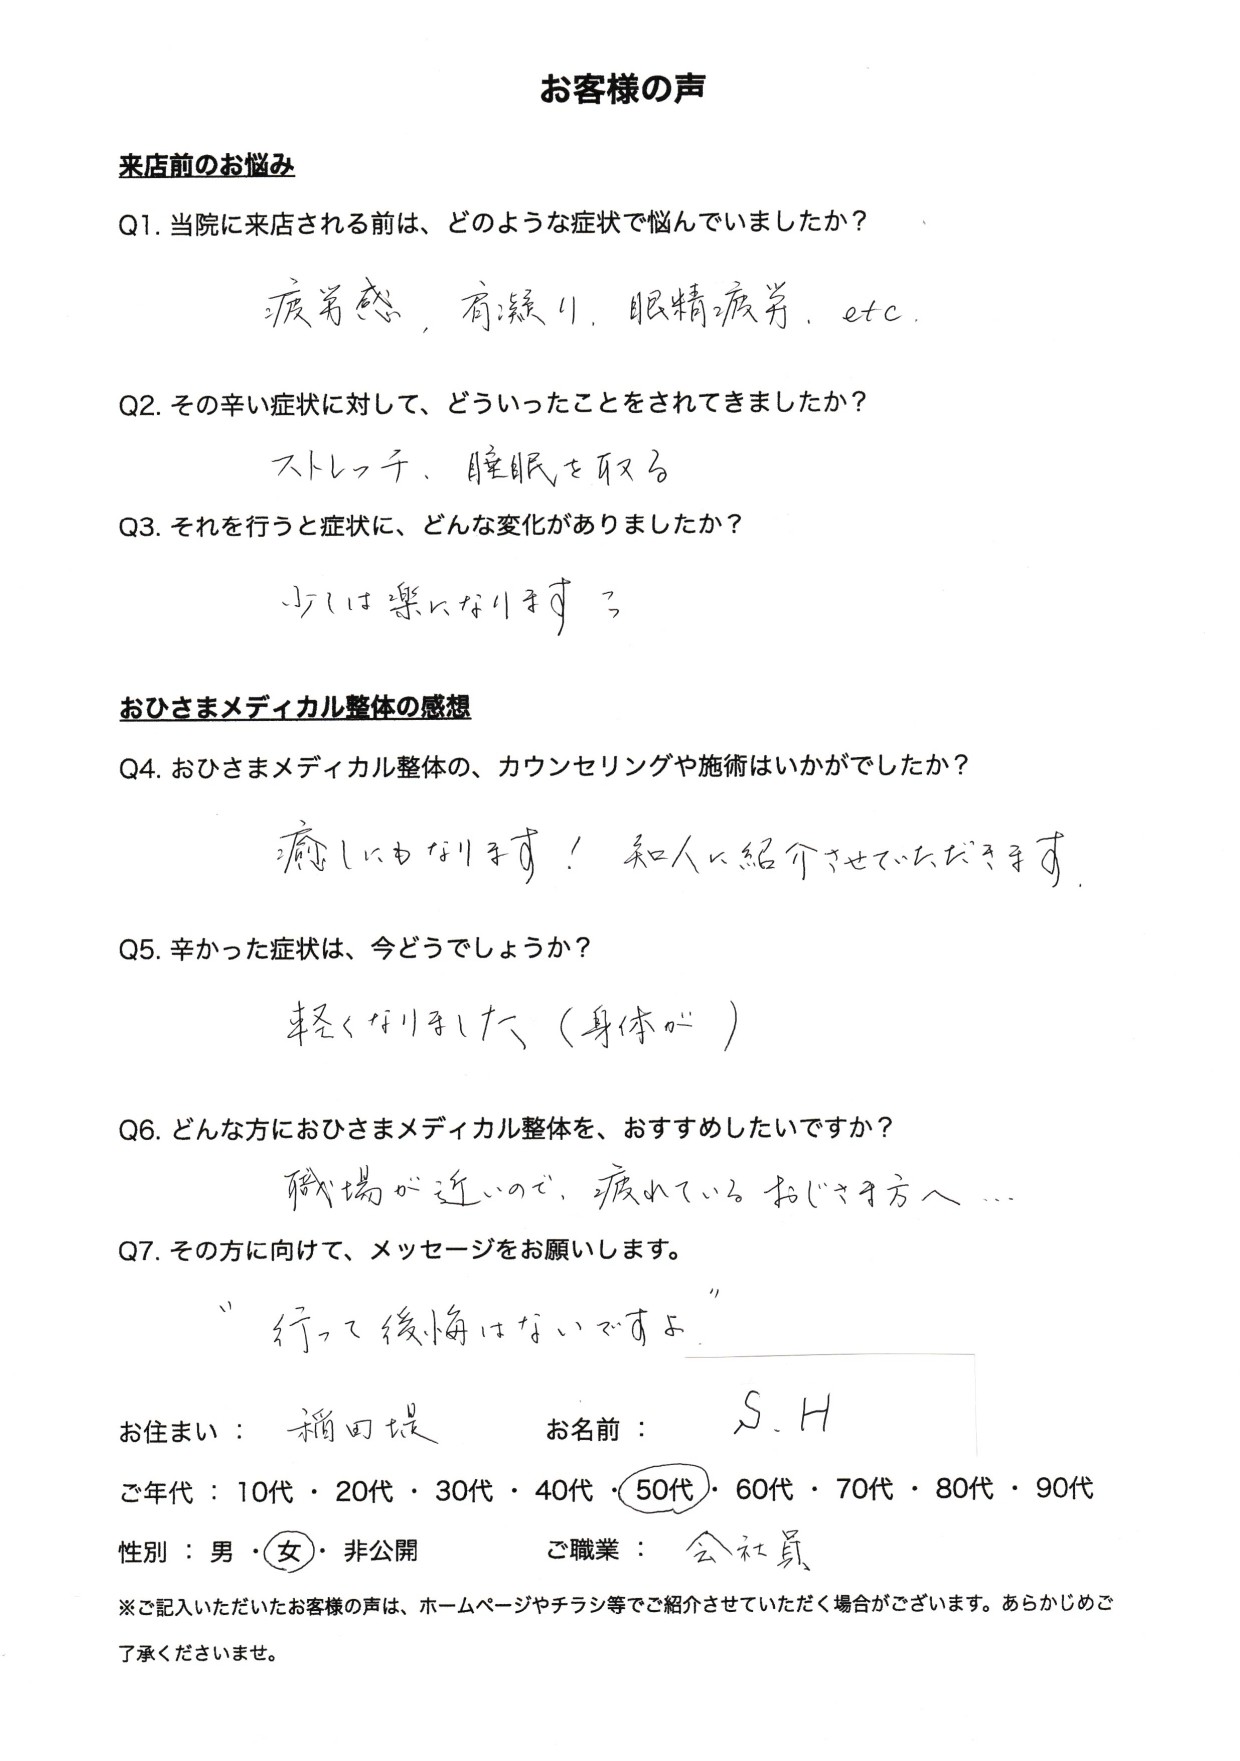 お客様の声
来店前のお悩み
Q1. 当院に来店される前は、どのような症状で悩んでいましたか？
疲労感, 肩凝り. 眼精疲労. etc.
Q2. その辛い症状に対して、どういったことをされてきましたか？
ストレッチ. 睡眠を取る
Q3. それを行うと症状に、どんな変化がありましたか？
少しは楽になります
おひさまメディカル整体の感想
Q4. おひさまメディカル整体の、カウンセリングや施術はいかがでしたか？
癒しにもなります！ 知人に紹介させていただきます.
Q5. 辛かった症状は、今どうでしょうか？
軽くなりました（身体が）
Q6. どんな方におひさまメディカル整体を、おすすめしたいですか？
職場が近いので、疲れているおじさま方へ…
Q7. その方に向けて、メッセージをお願いします。
"行って後悔はないですよ."
お住まい ： 稲田堤 お名前 ： S.H
ご年代 ： 10代 ・ 20代 ・ 30代 ・ 40代 ・ 50代 ・ 60代 ・ 70代 ・ 80代 ・ 90代
性別 ： 男 ・ 女 ・ 非公開 ご職業 ： 会社員
※ご記入いただいたお客様の声は、ホームページやチラシ等でご紹介させていただく場合がございます。あらかじめご
了承くださいませ。